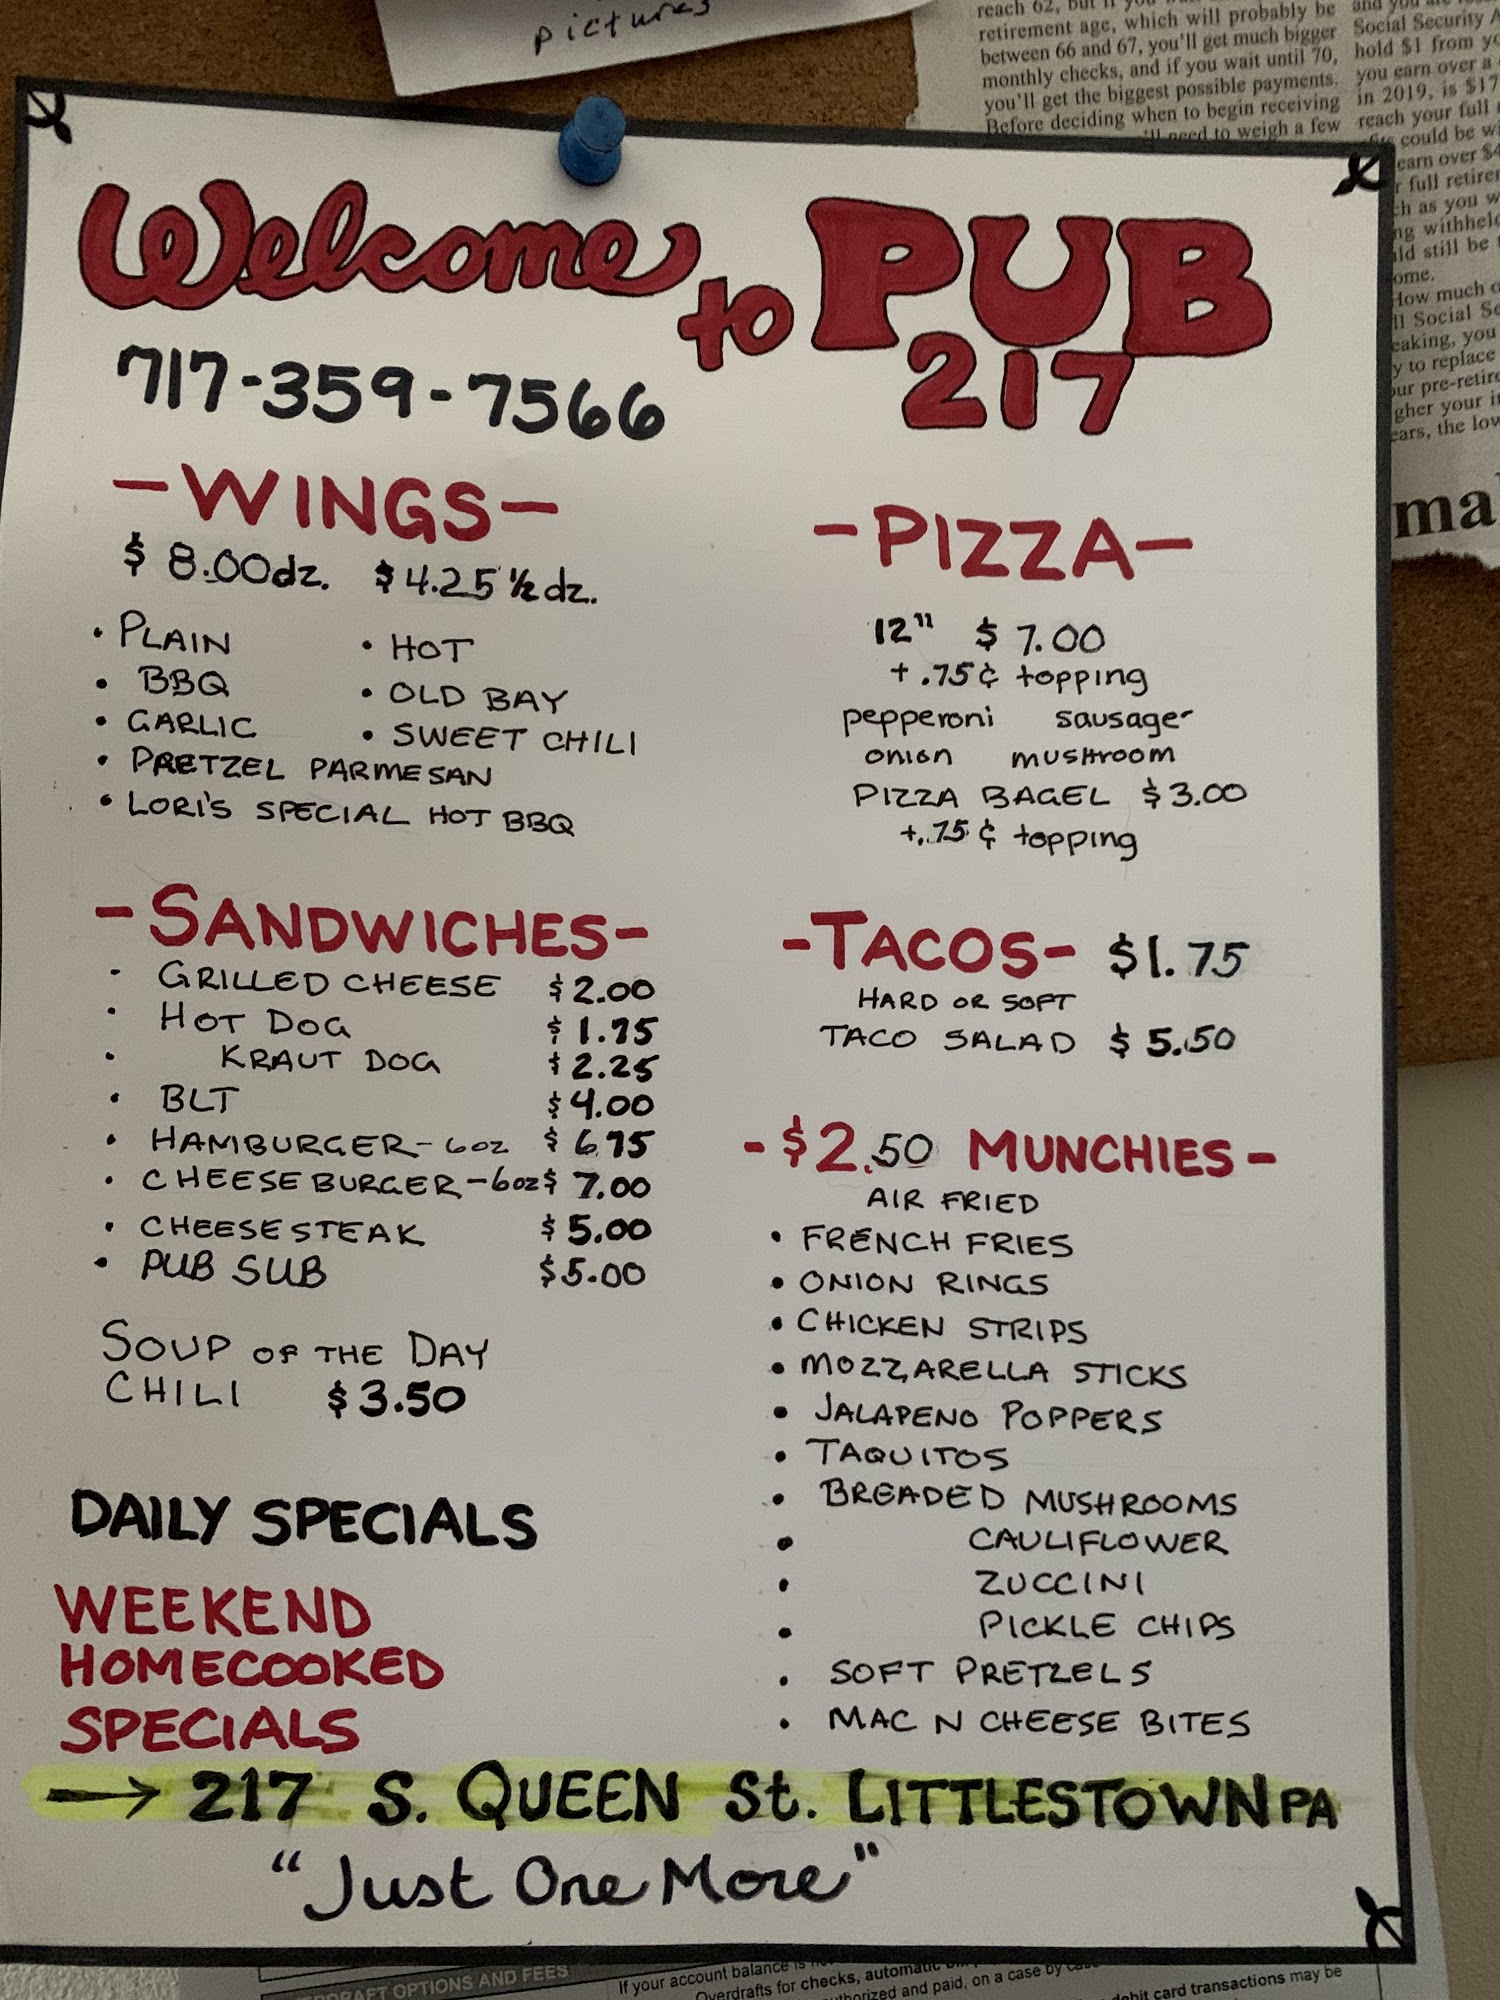 pictures
reach 62, but if you
retirement age, which will probably be
between 66 and 67, you'll get much bigger
monthly checks, and if you wait until 70,
you'll get the biggest possible payments.
Before deciding when to begin receiving
need to weigh a few
Social Security
hold $1 from
you earn over a
in 2019, is
reach your full
could be
earn over
full retire
as you
withheld
still be
How much
Social
you
to replace
pre-retire
your
the
ma
Welcome to PUB
217
717-359-7566
-WINGS-
$ 8.00dz. $4.25 ½ dz.
• PLAIN • HOT
• BBQ • OLD BAY
• GARLIC • SWEET CHILI
• PRETZEL PARMESAN
• LORI'S SPECIAL HOT BBQ
-SANDWICHES-
• GRILLED CHEESE $2.00
• HOT DOG $1.75
• KRAUT DOG $2.25
• BLT $4.00
• HAMBURGER-6oz $6.75
• CHEESEBURGER-6oz $7.00
• CHEESESTEAK $5.00
• PUB SUB $5.00
SOUP OF THE DAY
CHILI $3.50
DAILY SPECIALS
WEEKEND
HOMECOOKED
SPECIALS
-PIZZA-
12" $7.00
+.75¢ topping
pepperoni sausage
onion mushroom
PIZZA BAGEL $3.00
+.75¢ topping
-TACOS- $1.75
HARD OR SOFT
TACO SALAD $5.50
-$2.50 MUNCHIES-
AIR FRIED
• FRENCH FRIES
• ONION RINGS
• CHICKEN STRIPS
• MOZZARELLA STICKS
• JALAPENO POPPERS
• TAQUITOS
• BREADED MUSHROOMS
• CAULIFLOWER
• ZUCCINI
• PICKLE CHIPS
• SOFT PRETZELS
• MAC N CHEESE BITES
→ 217 S. QUEEN St. LITTLESTOWN PA
"Just One More"
OPTIONS AND FEES
If your account balance is
Overdrafts for checks, automatic
and paid, on a case by
card transactions may be